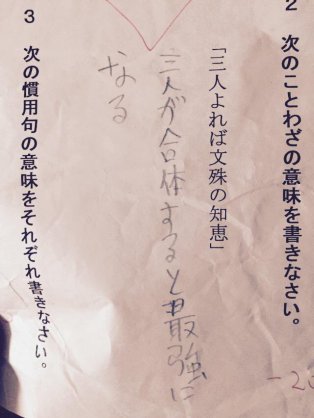 2 次のことわざの意味を書きなさい。
「三人よれば文殊の知恵」
三人が合体すると最強に
なる
3 次の慣用句の意味をそれぞれ書きなさい。